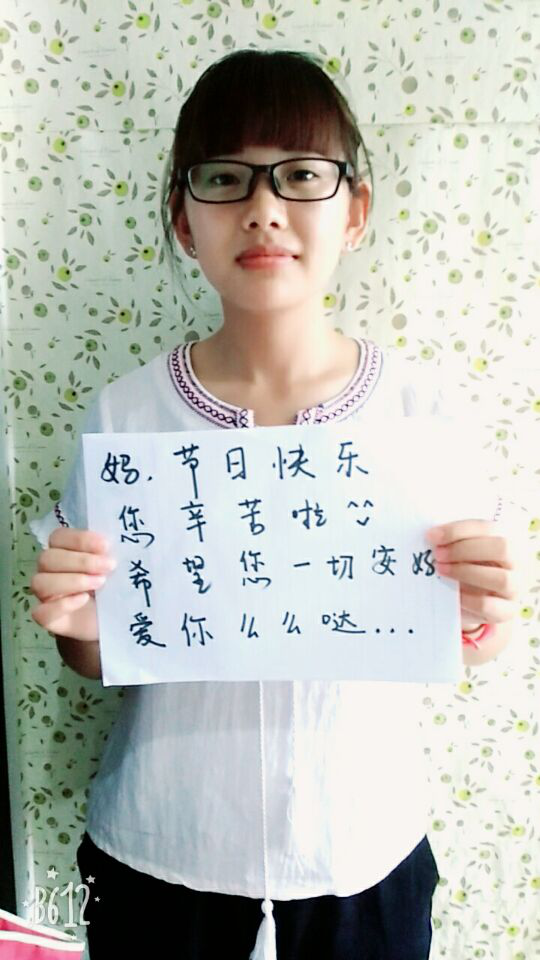 妈.节日快乐
您辛苦啦^^
希望您一切安好.
爱你么么哒...
B612